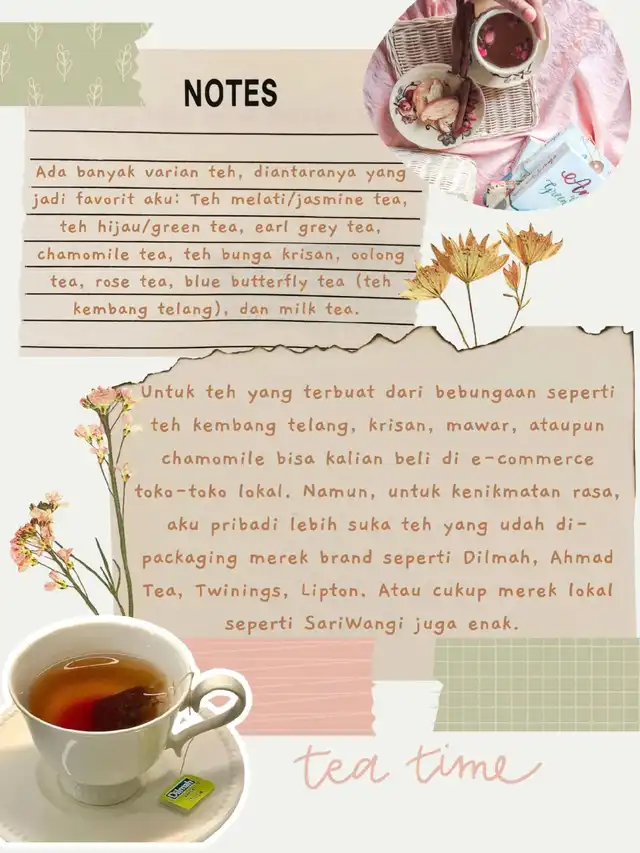 NOTES
Ada banyak varian teh, diantaranya yang
jadi favorit aku: Teh melati/jasmine tea,
teh hijau/green tea, earl grey tea,
chamomile tea, teh bunga krisan, oolong
tea, rose tea, blue butterfly tea (teh
kembang telang), dan milk tea.
Untuk teh yang terbuat dari bebungaan seperti
teh kembang telang, krisan, mawar, ataupun
chamomile bisa kalian beli di e-commerce
toko-toko lokal. Namun, untuk kenikmatan rasa,
aku pribadi lebih suka teh yang udah di-
packaging merek brand seperti Dilmah, Ahmad
Tea, Twinings, Lipton. Atau cukup merek lokal
seperti SariWangi juga enak.
Dilmah
tea time